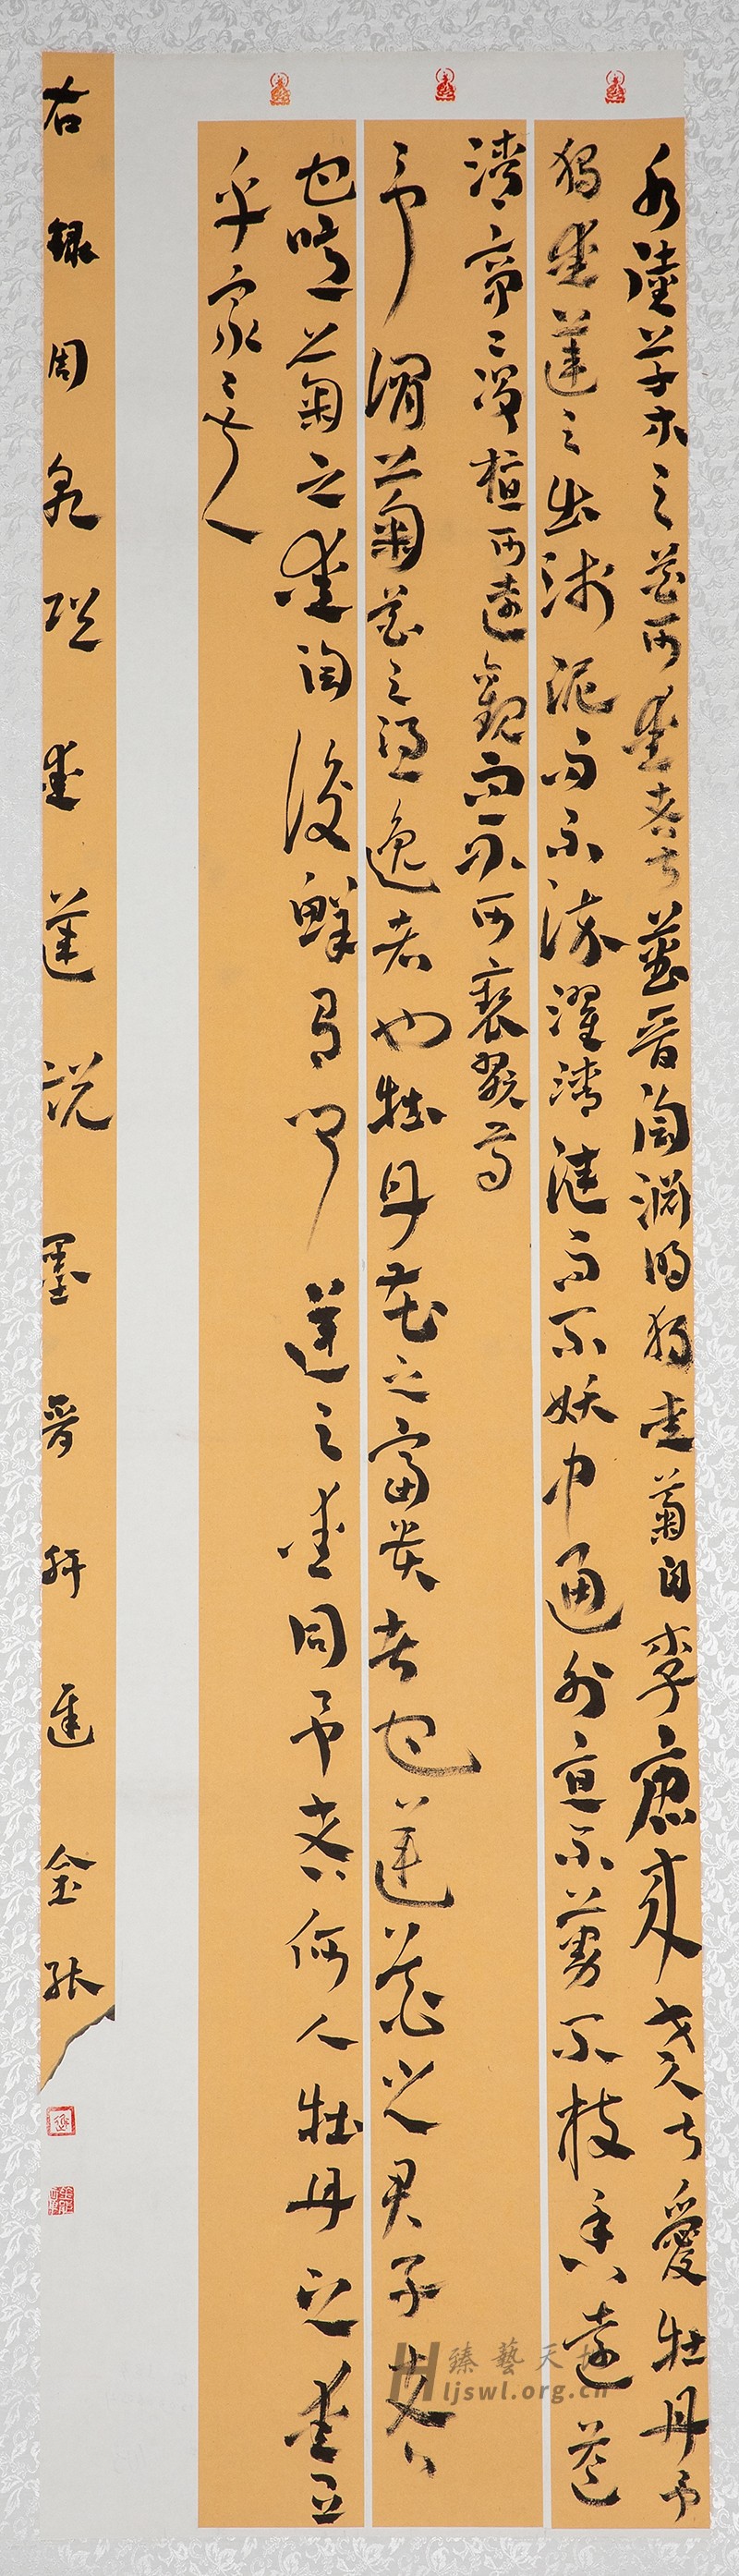 水陸草木之花可愛者甚蕃晉陶淵明獨愛菊自李唐來世人甚愛牡丹予
獨愛蓮之出淤泥而不染濯清漣而不妖中通外直不蔓不枝香遠益
清亭亭淨植可遠觀而不可褻翫焉
予謂菊花之隱逸者也牡丹花之富貴者也蓮花之君子者
也噫菊之愛陶後鮮有聞蓮之愛同予者何人牡丹之愛宜
乎眾矣
右錄周愛蓮說墨晉軒進金張
臻藝天
ljswl.org.cn